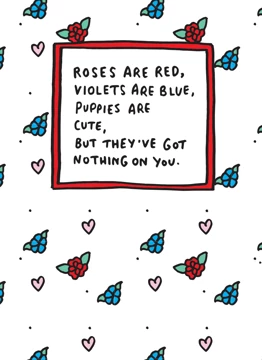 ROSES ARE RED,
VIOLETS ARE BLUE,
PUPPIES ARE
CUTE,
BUT THEY'VE GOT
NOTHING ON YOU.